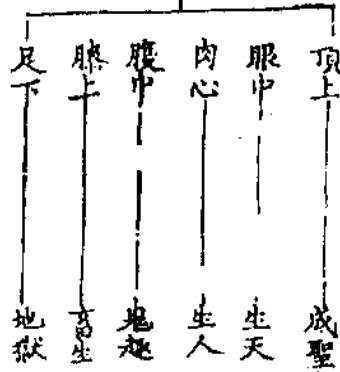 頂上 成聖
眼中 生天
肉心 生人
腹中 鬼趣
膝上 畜生
足下 地獄